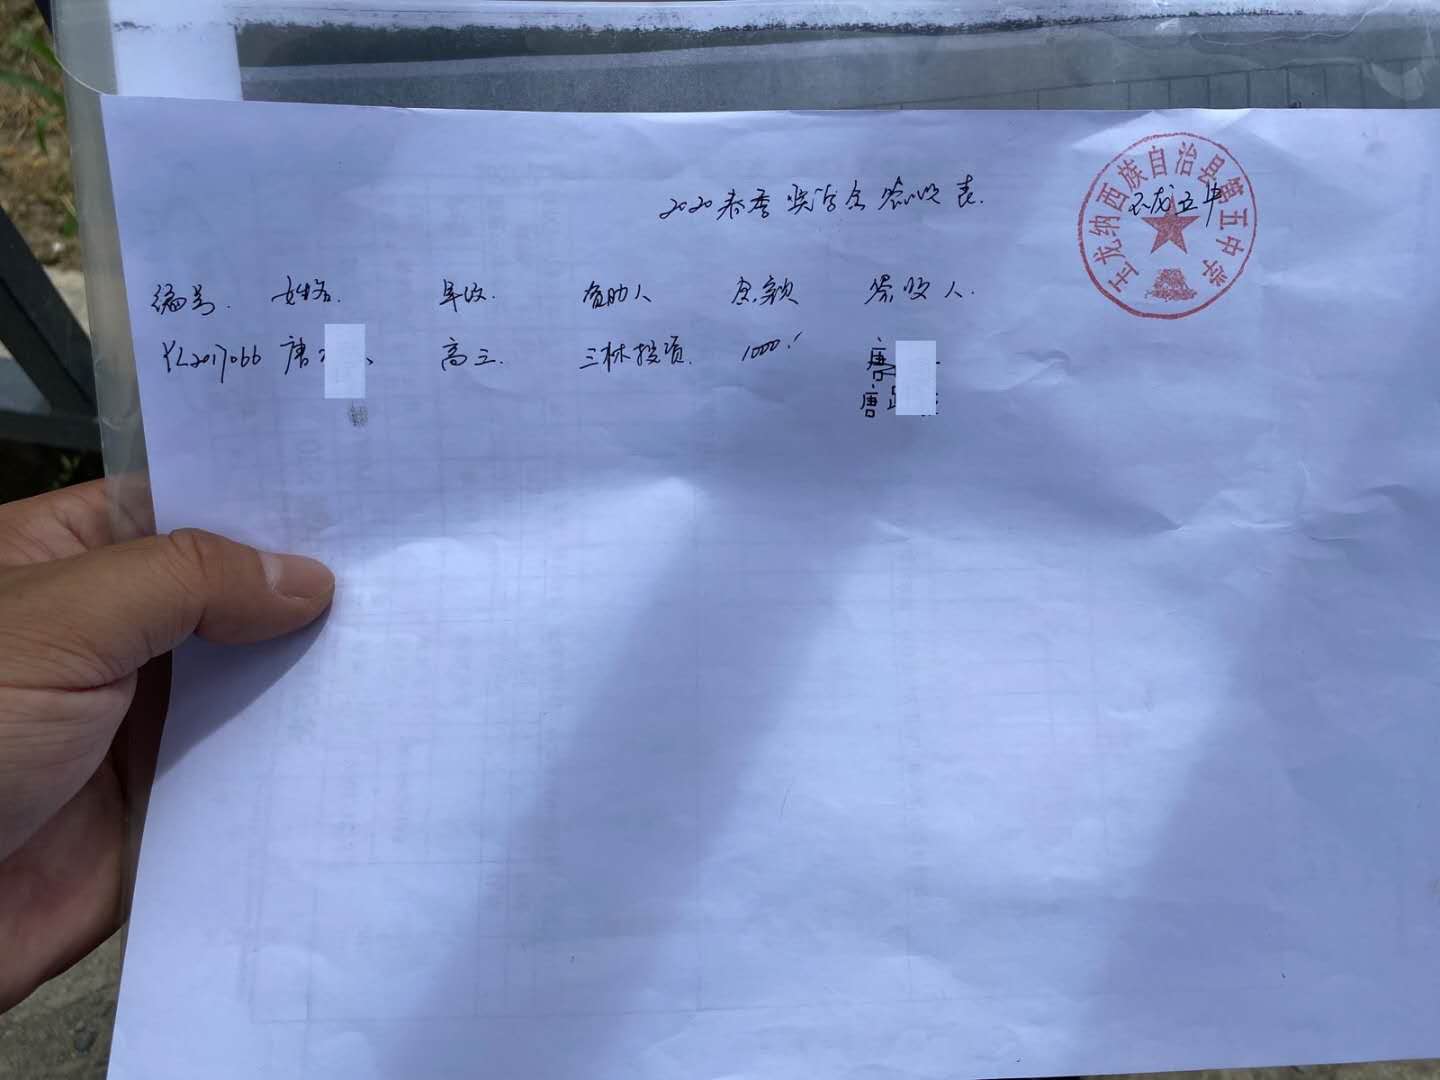 2020春季奖学金签收表. 玉龙五中
玉龙纳西族自治县第五中学
编号. 姓名. 年级. 资助人 金额 签收人.
YL2017066 唐 高三. 三林投资. 1000.
唐
唐